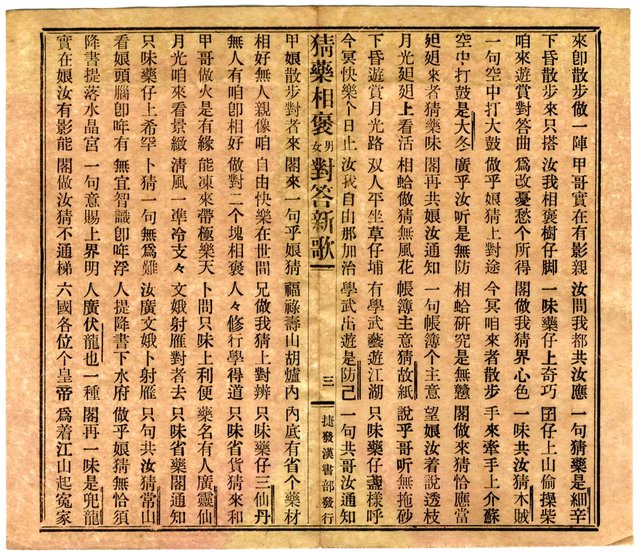 來卽散步做一陣 甲哥實在有影親 汝問我都共汝應 一句猜藥是細辛
下昏散步來只搭 汝我相褒樹仔脚 一味藥仔上奇巧 囝仔上山偷操柴
咱來遊賞對答曲 為改憂愁个所得 閣做我猜界心色 一味共汝猜木賊
一句空中打大鼓 做乎娘猜上對途 今冥咱來者散步 手來牽手上介蘇
空中打鼓是大冬 廣乎汝听是無防 相蛤研究是無戇 閣做來猜恰應當
廻廻來者猜藥味 閣再共娘汝通知 一句帳簿个主意 望娘汝着說透枝
月光廻廻上看活 相蛤做猜無風花 帳簿主意猜故紙 說乎哥听無拖砂
下昏遊賞月光路 双人平坐草仔埔 有學武藝遊江湖 只味藥仔盞樣呼
今冥快樂个日止 汝我自由那加治 學武出遊是防己 一句共哥汝通知
猜藥相褒男女對答新歌 三 捷發漢書部發行
甲娘散步對者來 閣來一句乎娘猜 福祿壽山胡爐內 內底有省个藥材
相好無人親像咱 自由快樂在世間 兄做我猜上對辨 只味藥仔三仙丹
無人有咱卽相好 做對二个塊相褒 人々修行學得道 只味省貨猜來和
甲哥做火是有緣 能凍來帶極樂天 卜問只味上利便 藥名有人廣靈仙
月光咱來看景緻 清風一準冷支々 文娥射雁對者去 只味省藥閣通知
只味藥仔上希罕 卜猜一句無為難 汝廣文娥卜射雁 只句共汝猜常山
看娘頭腦卽哖有 無宜智識卽哖浮 人提降書下水府 做乎娘猜無恰須
降書提落水晶宮 一句意賜上界明 人廣伏龍也一種 閣再一味是兜龍
實在娘汝有影能 閣做汝猜不通梯 六國各位个皇帝 為着江山起冤家